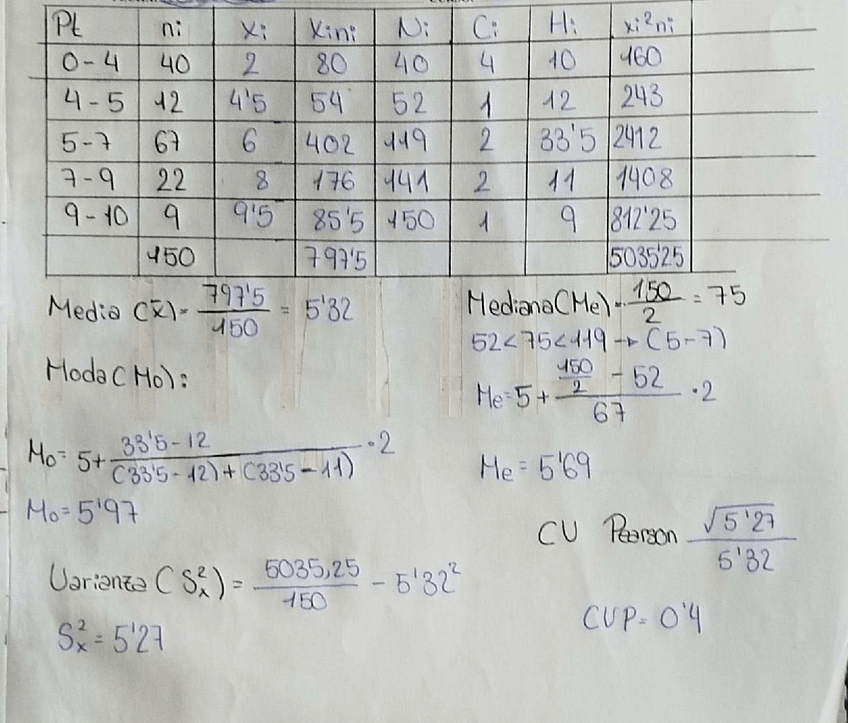 Pt ni xi xini Ni Ci Hi xi²ni
0-4 40 2 80 40 4 10 160
4-5 12 4'5 54 52 1 12 243
5-7 67 6 402 119 2 33'5 2412
7-9 22 8 176 141 2 11 1408
9-10 9 9'5 85'5 150 1 9 812'25
150 797'5 5035'25
Media (x̄)= 797'5/150 = 5'32
Mediana(Me)= 150/2 = 75
52<75<119 → (5-7)
Me=5+ (150/2 - 52)/67 ·2
Me= 5'69
Moda(Mo):
Mo= 5+ 33'5-12/((33'5-12)+(33'5-11)) ·2
Mo=5'97
CV Pearson √5'27/5'32
CVP= 0'4
Varianza (S²x)= 5035,25/150 - 5'32²
S²x= 5'27